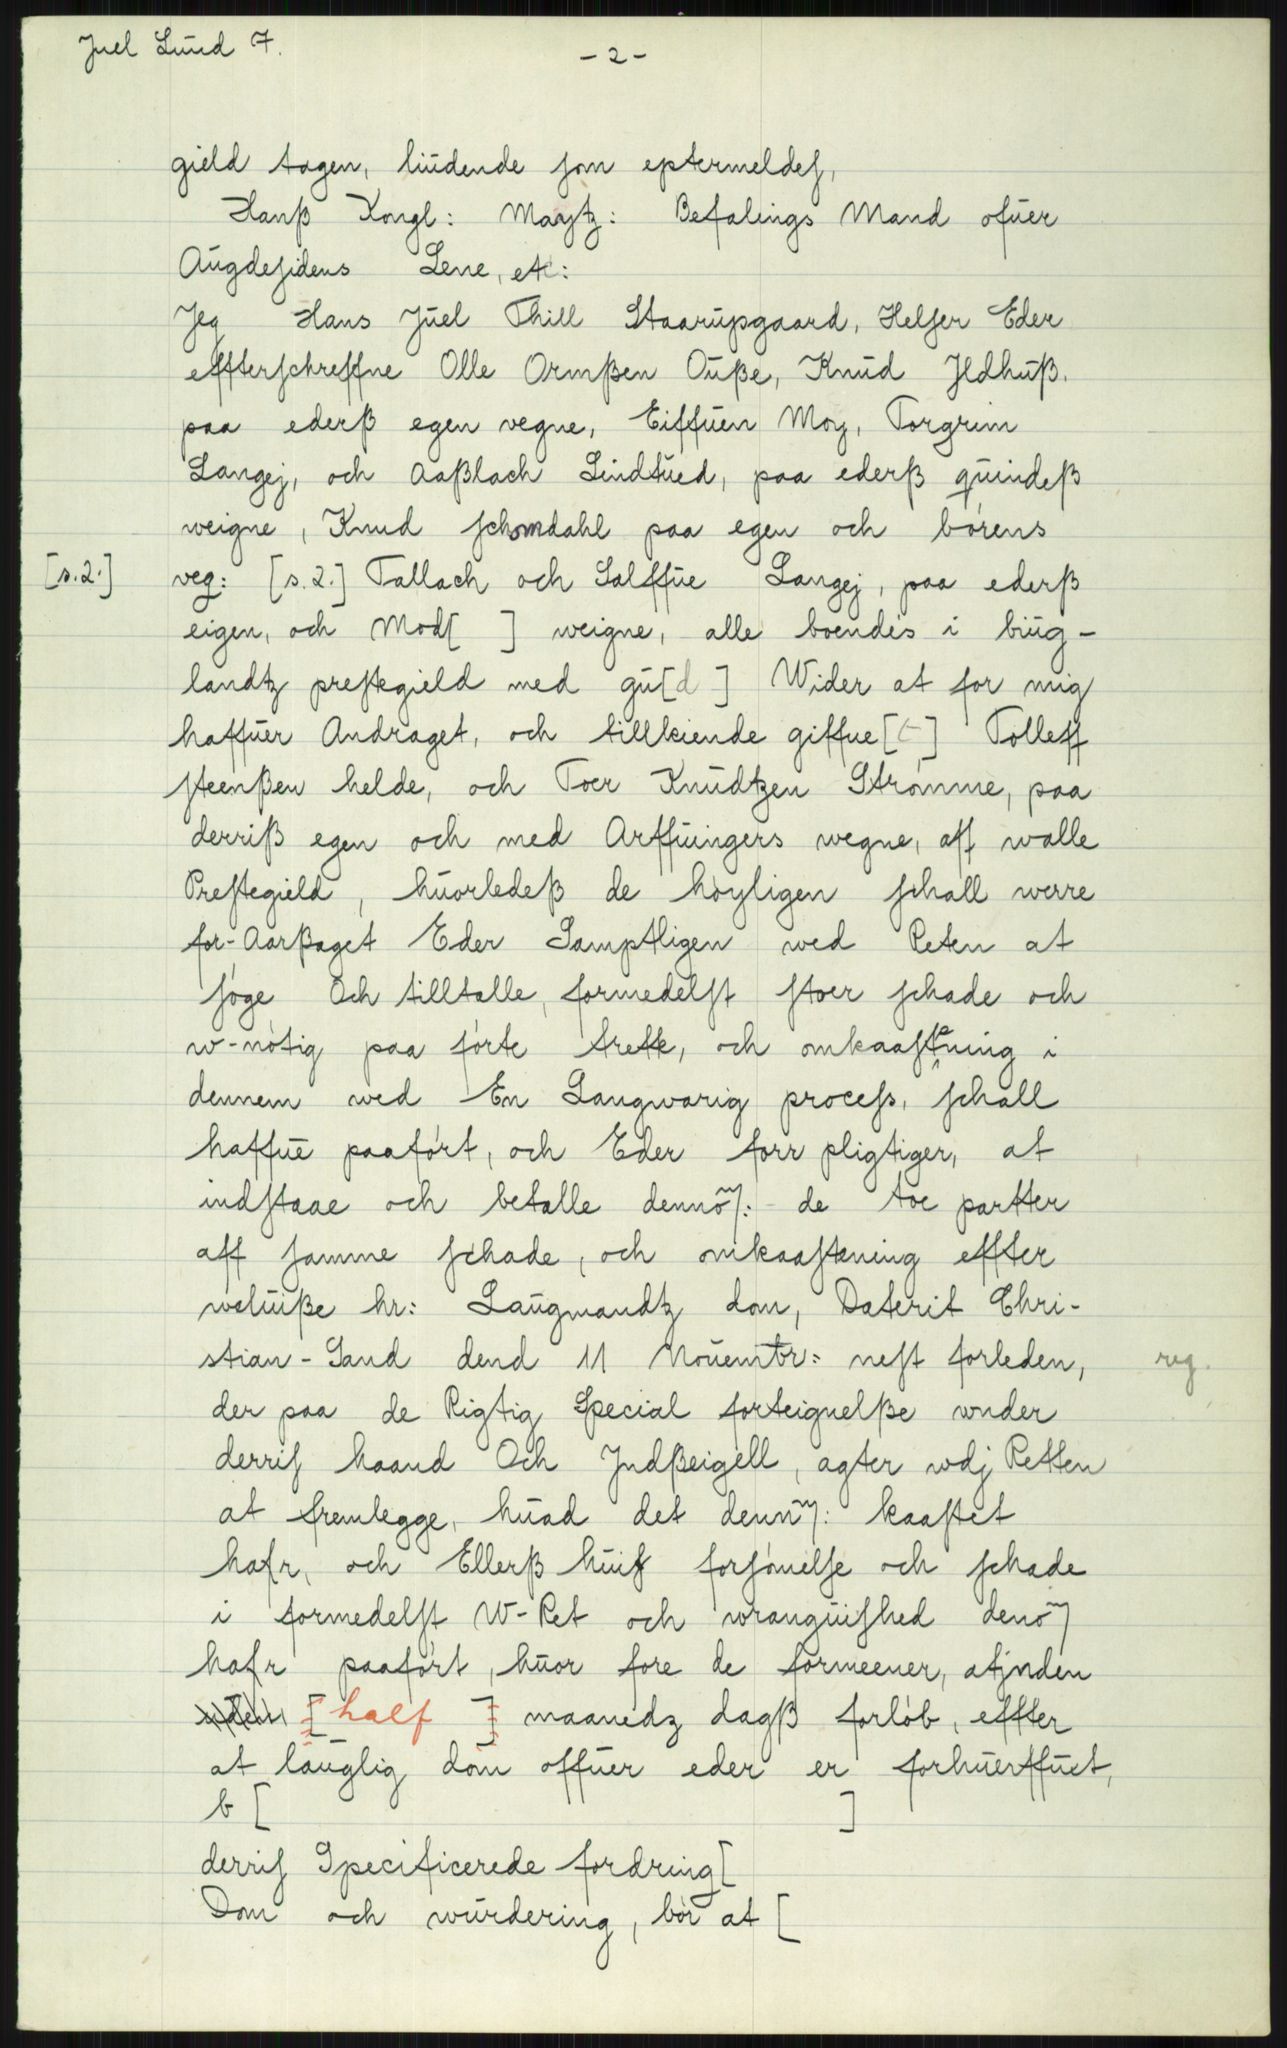 Juel Lund 7.
- 2 -
gield tagen, liudende som eptermeldes,
Hanß Kongl: Maytz: Befalings Mand ofuer
Augdesidens Lene, etc:
Jeg Hans Juel Thill Staarupgaard, Helser Eder
effterschreffne Olle Ormßen Oußе, Knud Jldhuß.
paa ederß egen vegne, Eiffuen Moy, Torgrim
Langej, och Aaßlach Lindtued, paa ederß quindeß
weigne, Knud schomdahl paa egen och börens
[s.2.] veg: [s.2.] Tallach och Salffue Langej, paa ederß
eigen, och Mod[ ] weigne, alle boendes i biug-
landtz prestegield med gu[d ] Wider at for mig
haffuer Andraget, och tillkiende giffue[t] Tolleff
steenßen helde, och Toer Knudtzen Strömme, paa
derriß egen och med Arffuingers wegne, aff walle
Prestegield, huorledeß de höyligen schall werre
for-Aarßaget Eder Samptligen wed Reten at
söge Och tilltalle, formedelst stoer schade och
w-nötig paa förte trette, och omkaastening i
dennem wed En Langwarig process, schall
haffue paafört, och Eder forr pligtiger, at
indstaae och betalle dennom: de toe partter
aff samme schade, och omkaastening effter
weluiße hr: Laugmandtz dom, Daterit Chri-
stian-Sand dend 11 Nouembr: nest forleden, reg.
der paa de Rigtig Special forteignelße wnder
derris haand Och Jndßeigell, agter wdj Retten
at fremlegge, huad det denn: kaastet
hafr, och Ellerß huis forsömelse och schade
i formedelst W-Ret och wranguished denom
hafr paafört, huor fore de formeener, atjnden
[half ] maanedz dagß forlöb, effter
at lauglig dom offuer eder er forhuerffuet,
b [ ]
derris Specificerede fordring[
Dom och wurdering, bör at [